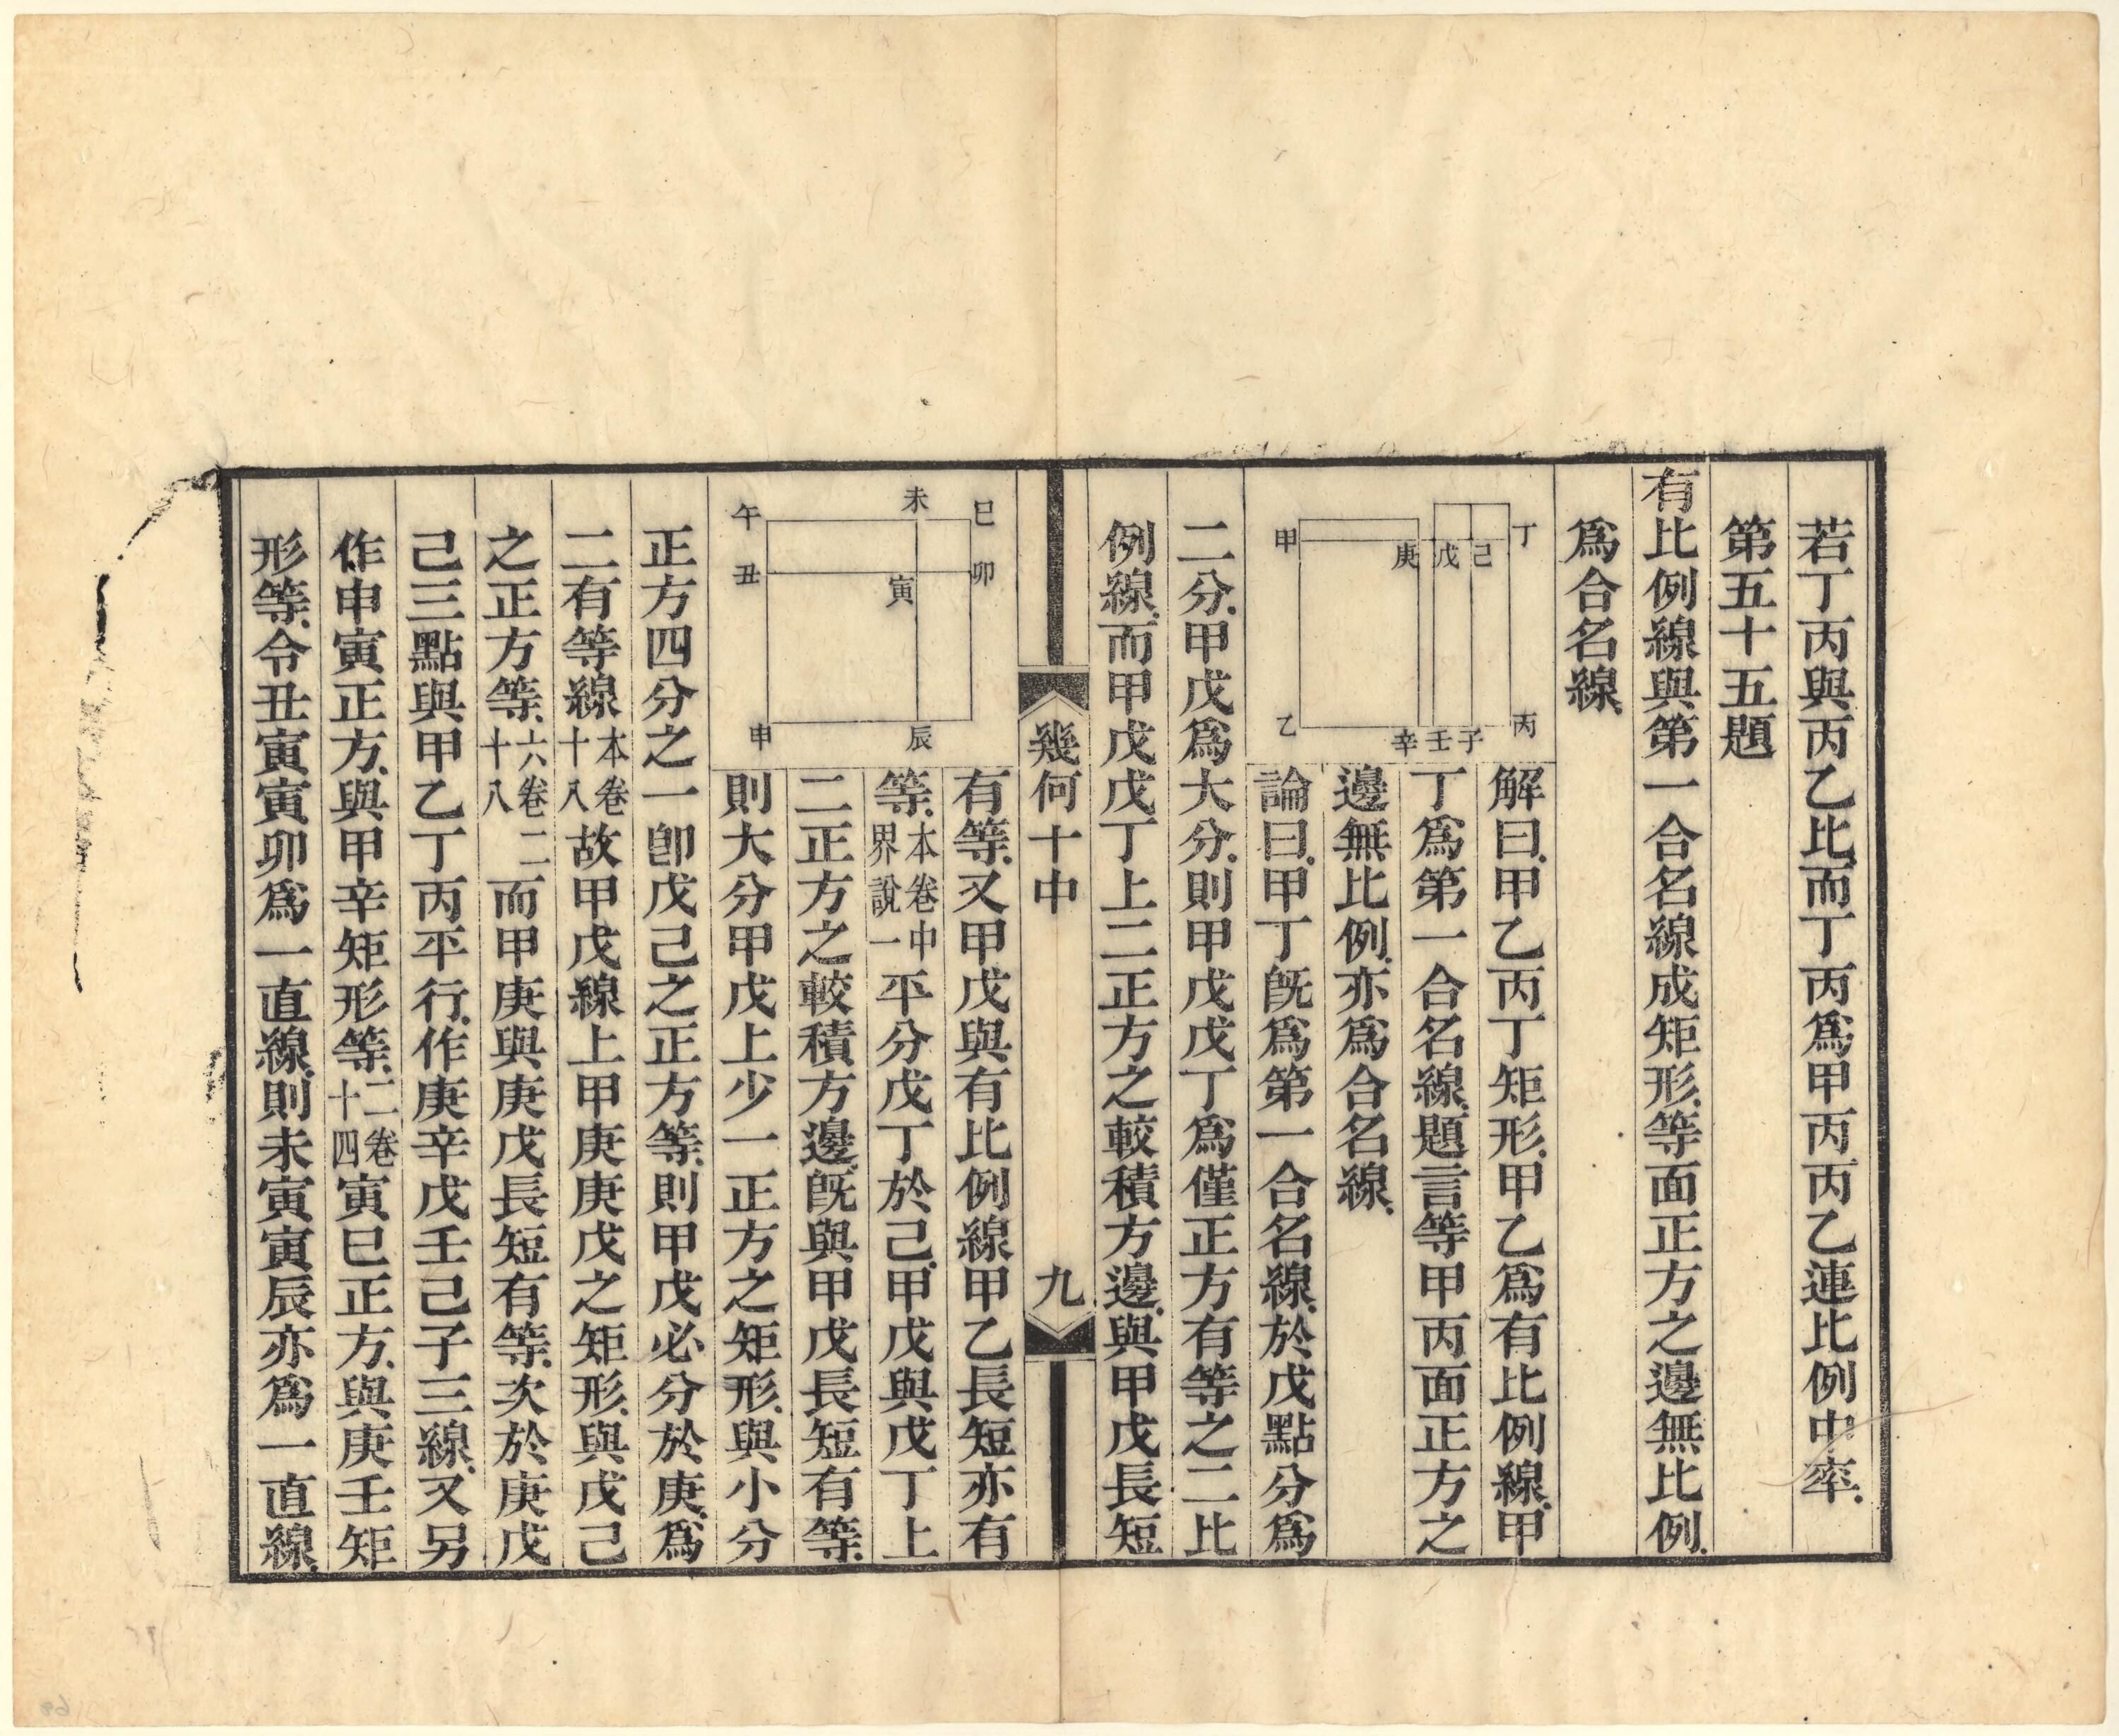 若丁丙與丙乙比而丁丙爲甲丙丙乙連比例中率.
第五十五題
有比例線與第一合名線成矩形.等面正方之邊無比例.
爲合名線.
丁
己
戊
庚
甲
丙
子
壬
辛
乙
解曰.甲乙丙丁矩形.甲乙爲有比例線.甲
丁爲第一合名線.題言等甲丙面正方之
邊無比例.亦爲合名線.
論曰.甲丁旣爲第一合名線.於戊點分爲
二分.甲戊爲大分.則甲戊戊丁爲僅正方有等之二比
例線.而甲戊戊丁上二正方之較積方邊.與甲戊長短
幾何十中
九
巳
未
午
卯
寅
丑
辰
申
有等.又甲戊與有比例線甲乙長短亦有
等.本卷中界說一平分戊丁於己.甲戊與戊丁上
二正方之較積方邊.旣與甲戊長短有等.
則大分甲戊上少一正方之矩形.與小分
正方四分之一卽戊己之正方等.則甲戊必分於庚.爲
二有等線本卷十八故甲戊線上甲庚庚戊之矩形.與戊己
之正方等.六卷二十八而甲庚與庚戊長短有等.次於庚戊
己三點與甲乙丁丙平行.作庚辛戊壬己子三線.又另
作申寅正方.與甲辛矩形等.二卷十四寅巳正方.與庚壬矩
形等.令丑寅寅卯爲一直線.則未寅寅辰亦爲一直線.